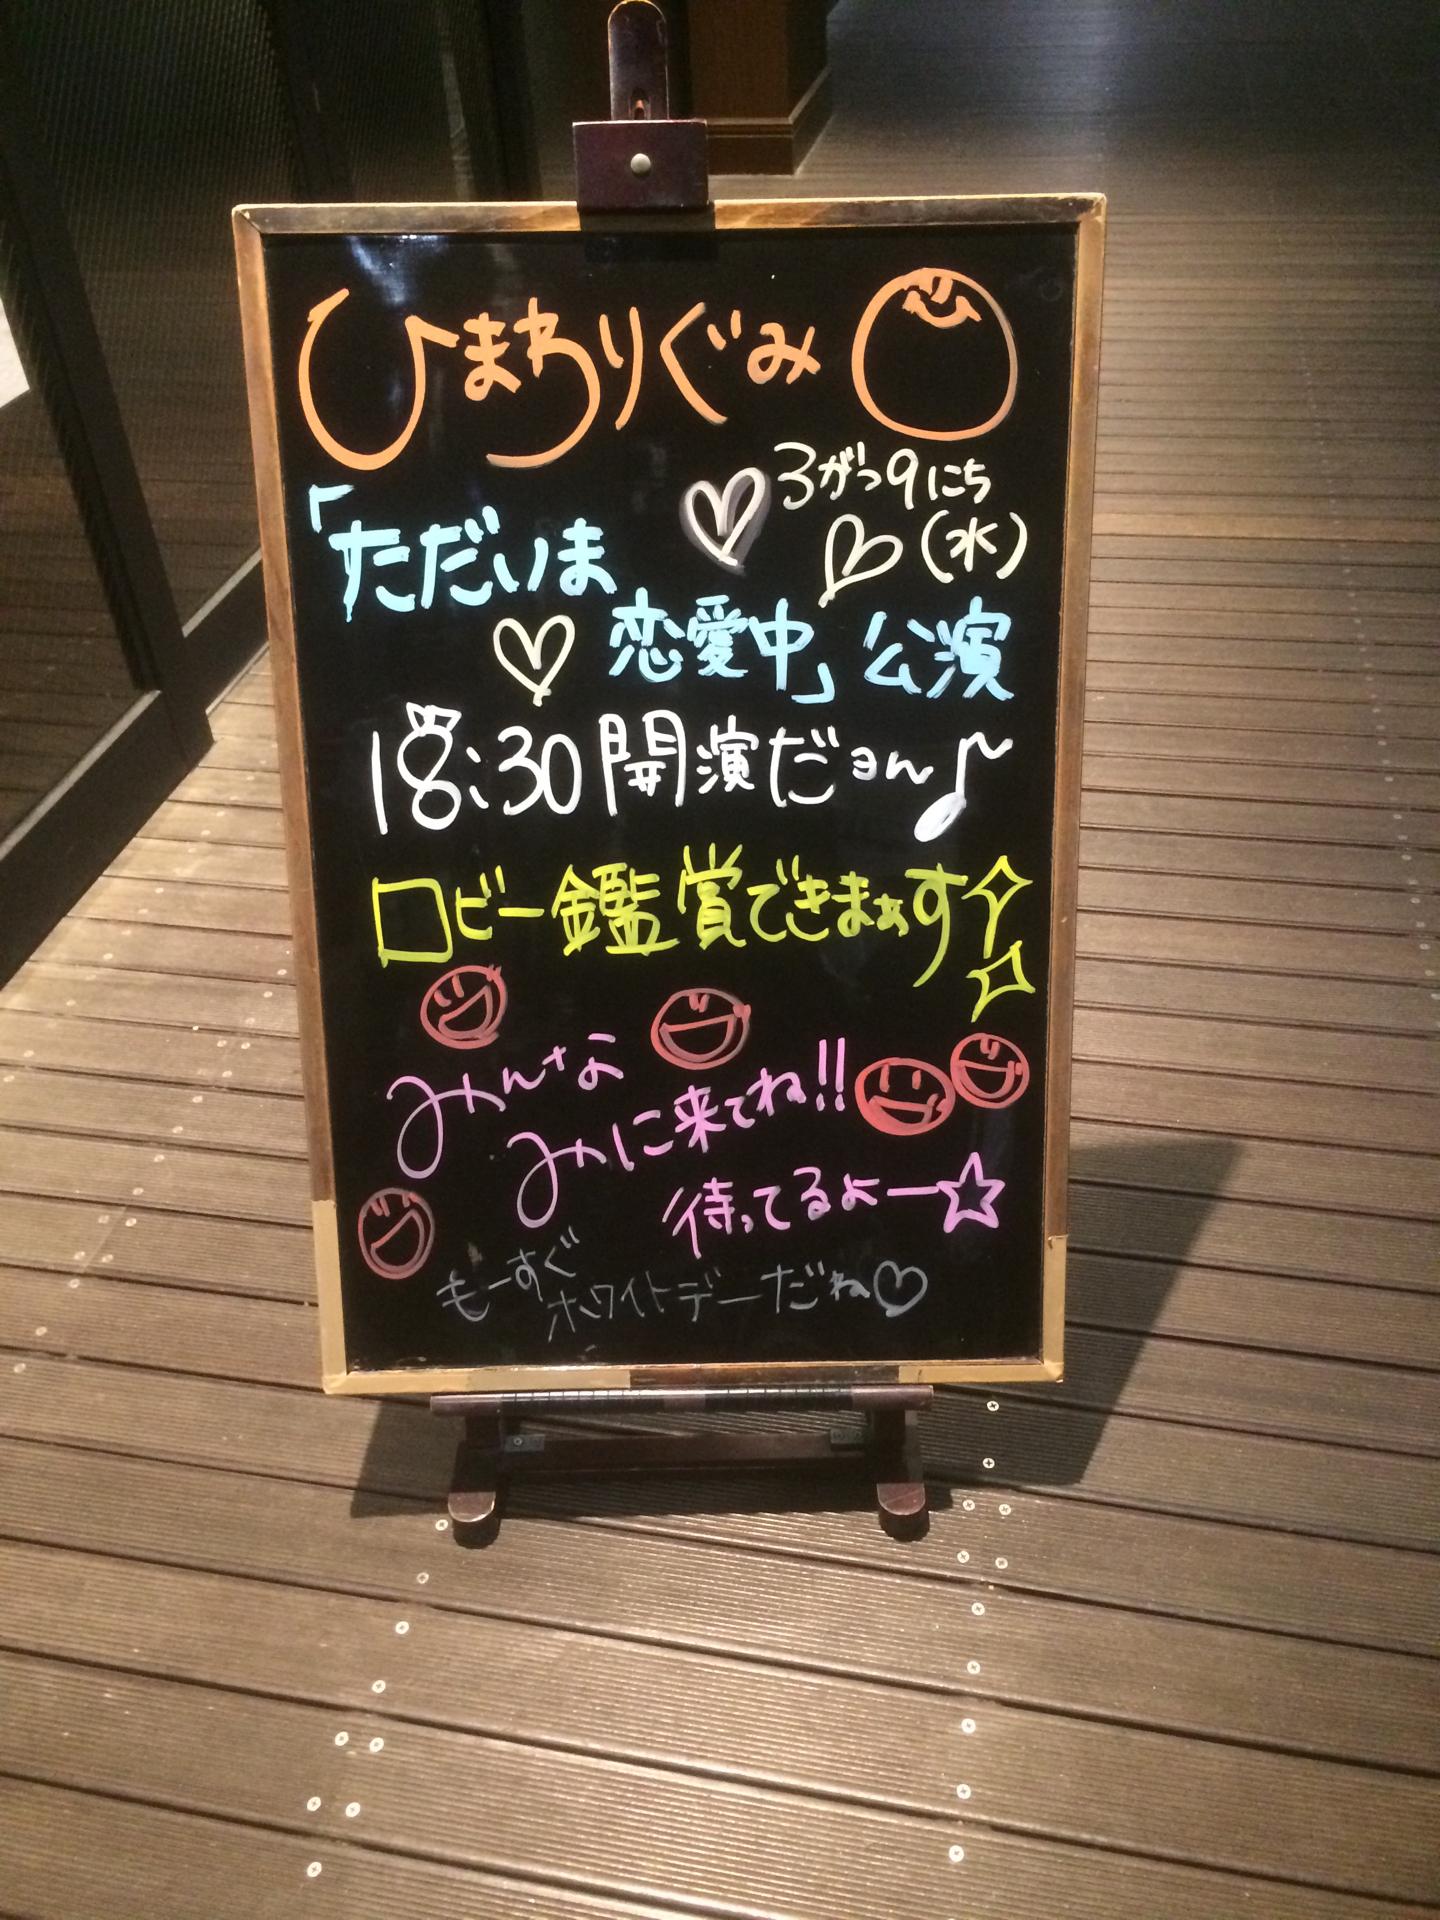 ひまわりぐみ
3がつ9にち
(水)
「ただいま
恋愛中」公演
18:30開演だョん♪
ロビー鑑賞できまぁす
みんな
みに来てね!!
待ってるよー☆
もーすぐ
ホワイトデーだね♡